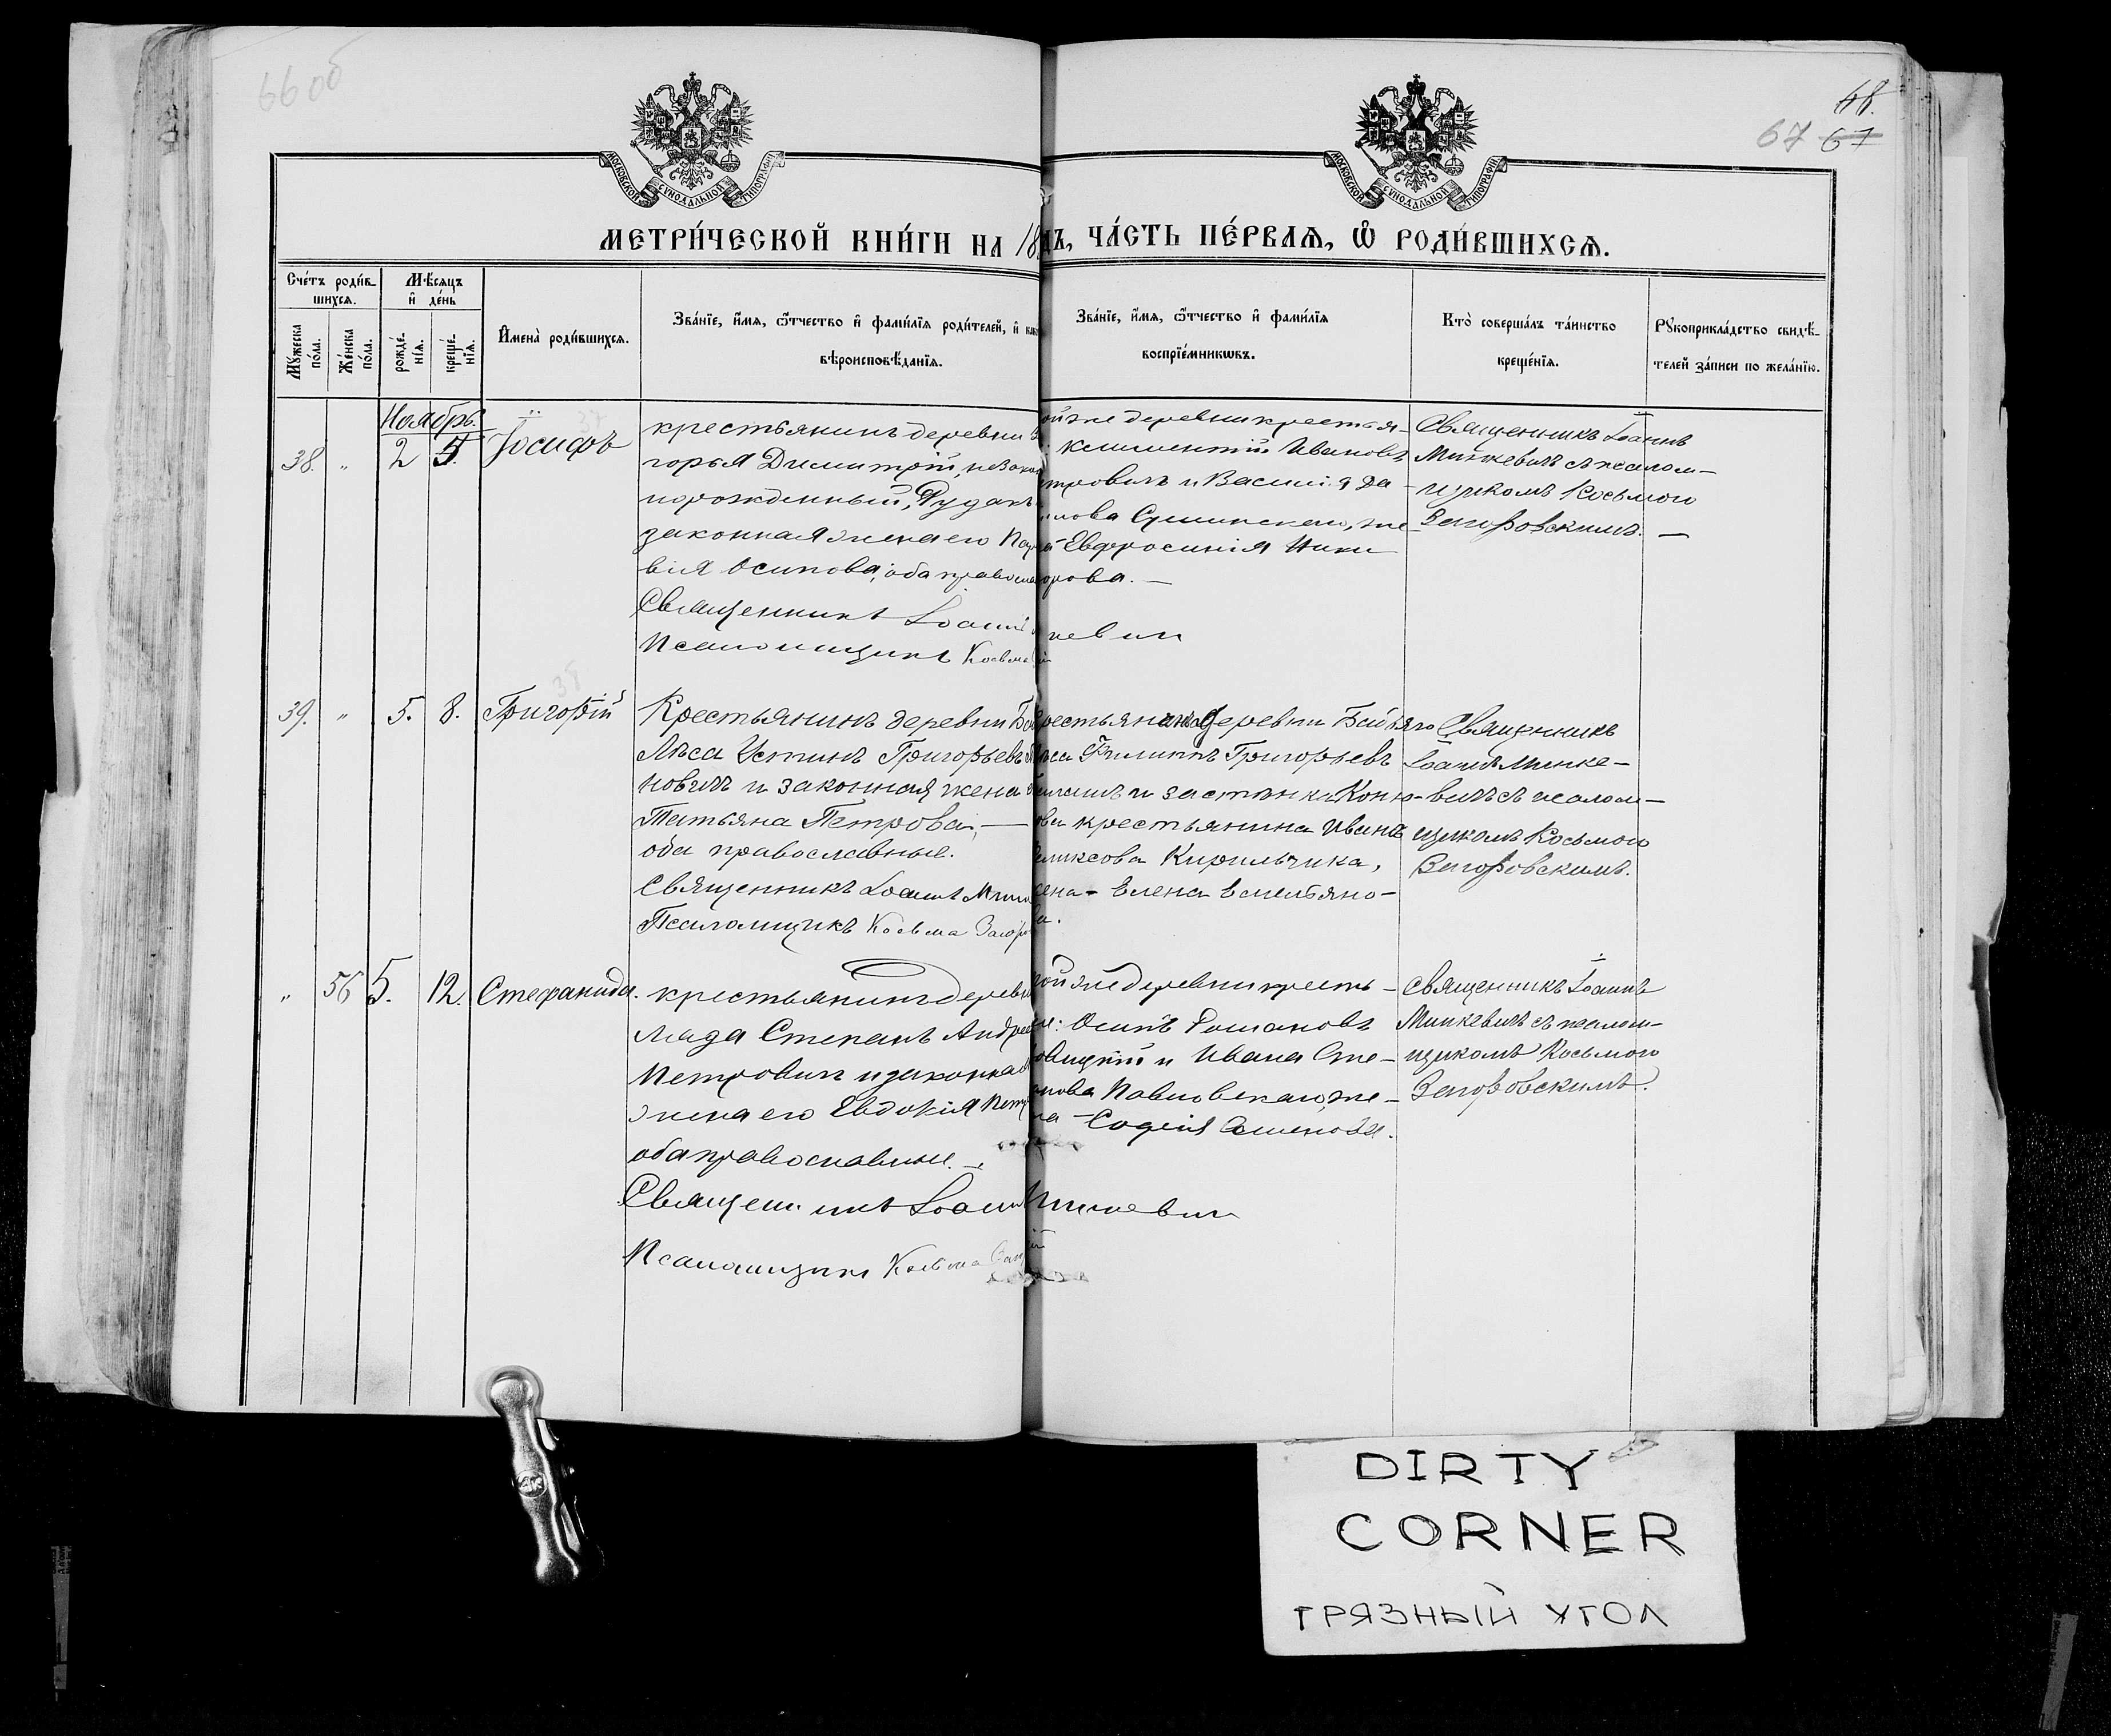 66 об
68.
67 67
МОСКОВСКОЙ СѴНОДАЛЬНОЙ ТИПОГРАФІИ
МОСКОВСКОЙ СѴНОДАЛЬНОЙ ТИПОГРАФІИ
МЕТРИ́ЧЕСКОЙ КНИ́ГИ НА 18
ДЪ, ЧА́СТЬ ПЕ́РВАѦ, Ѽ РОДИ́ВШИХСѦ.
Сче́тъ роди́в-
шихсѧ.
Мꙋ́жеска
по́ла.
Же́нска
по́ла.
Мѣ́сѧцъ
и҆ де́нь
рожде́-
нїѧ.
креще́-
нїѧ.
И҆мена̀ роди́вшихсѧ.
Зва́нїе, и҆́мѧ, ѻ҆́тчество и҆ фамѵ́лїѧ роди́телей, и҆
вѣроисповѣ́данїѧ.
Зва́нїе, и҆́мѧ, ѻ҆́тчество и҆ фамѵ́лїѧ
воспрїе́мникѡвъ.
Кто̀ соверша́лъ та́инство
креще́нїѧ.
Рꙋкоприкла́дство свидѣ́-
телей за́писи по жела́нїю.
Ноябрь.
38. " 2 5. Іосифъ
крестьянинъ деревни
горья Димитрій, незакон
порожденный, Рудакъ
законная жена его
вія Осипова, оба правосла
Священникъ Іоаннъ
Псаломщикъ Косьма
ой же деревни крестья-
Климентій Ивановъ
тровичъ и Василія Да-
илова Сушинскаго, же-
на Евфросинія Ники
орова. —
кевичъ
Священникъ Іоаннъ
Минкевичъ съ псалом-
щикомъ Косьмою
Загоровскимъ. —
39. " 5. 8. Григорій
Крестьянинъ деревни
Лѣса Устинъ Григорьевъ
новичъ и законная жена
Татьяна Петрова, —
оба православные.
Священникъ Іоаннъ Мин
Псаломщикъ Косьма Загор
рестьянинъ деревни
ѣса Филиппъ Григорьевъ
и застѣнка Коню-
ва крестьянина Ивана
еликсова Кирильчика,
жена - Елена Емельяно-
ва.
Священникъ
Іоаннъ Минке-
вичъ съ псалом-
щикомъ Косьмою
Загоровскимъ.
" 56 5. 12. Стефанида.
крестьянинъ деревни
Степанъ Андрее
Петровичъ и законная
жена его Евдокія Петр
оба православные. —
Священникъ Іоаннъ Минкевичъ
Псаломщикъ Косьма
той же деревни кресть-
Осипъ Романовъ
и Ивана Сте-
панова Павловскаго, же-
на - Софія Семенова.
Священникъ Іоаннъ
Минкевичъ съ псалом-
щикомъ Косьмою
Загоровскимъ.
DIRTY
CORNER
ГРЯЗНЫЙ УГОЛ